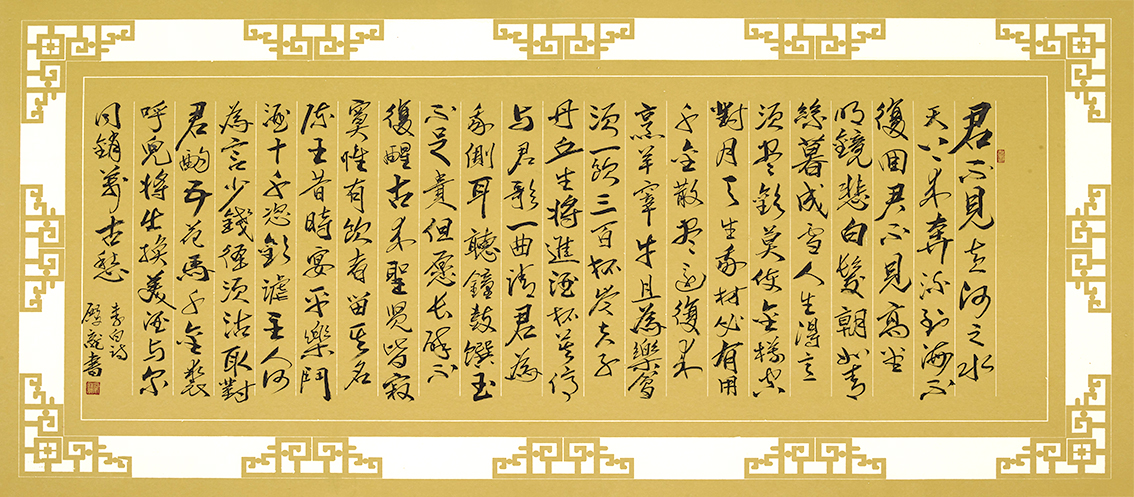 君不見黃河之水
天上來奔流到海不
復回君不見高堂
明鏡悲白髮朝如青
絲暮成雪人生得意
須盡歡莫使金樽空
對月天生我材必有用
千金散盡還復來
烹羊宰牛且為樂會
須一飲三百杯岑夫子
丹丘生將進酒杯莫停
与君歌一曲請君為
我側耳聽鐘鼓饌玉
不足貴但願長醉不
復醒古來聖賢皆寂
寞惟有飲者留其名
陳王昔時宴平樂鬥
酒十千恣歡謔主人何
為言少錢徑須沽取對
君酌五花馬千金裘
呼兒將出換美酒与尔
同銷萬古愁
李白詩
書